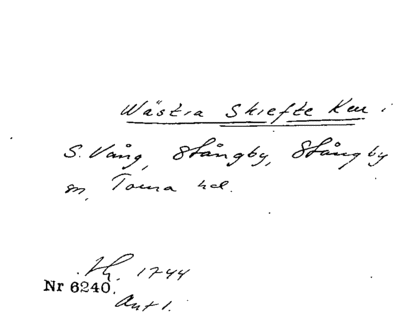 Wästra Skiefte Ken i
S. Vång, Stångby, Stångby
sn, Torna hd.
1744
Nr 6240.
Avt 1.